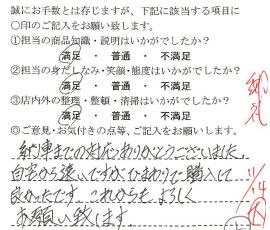 誠にお手数とは存じますが、下記に該当する項目に
〇印のご記入をお願い致します。
①担当の商品知識・説明はいかがでしたか？
満足 ・ 普通 ・ 不満足
②担当の身だしなみ・笑顔・態度はいかがでしたか？
満足 ・ 普通 ・ 不満足
③店内外の整理・整頓・清掃はいかがでしたか？
満足 ・ 普通 ・ 不満足
◎ご意見・お気付きの点等、ご記入をお願いします。
納車までの対応ありがとうございました。
自宅から遠いですがひまわりで購入して
良かったです。これからもよろしく
お願い致します。
御礼
11/14